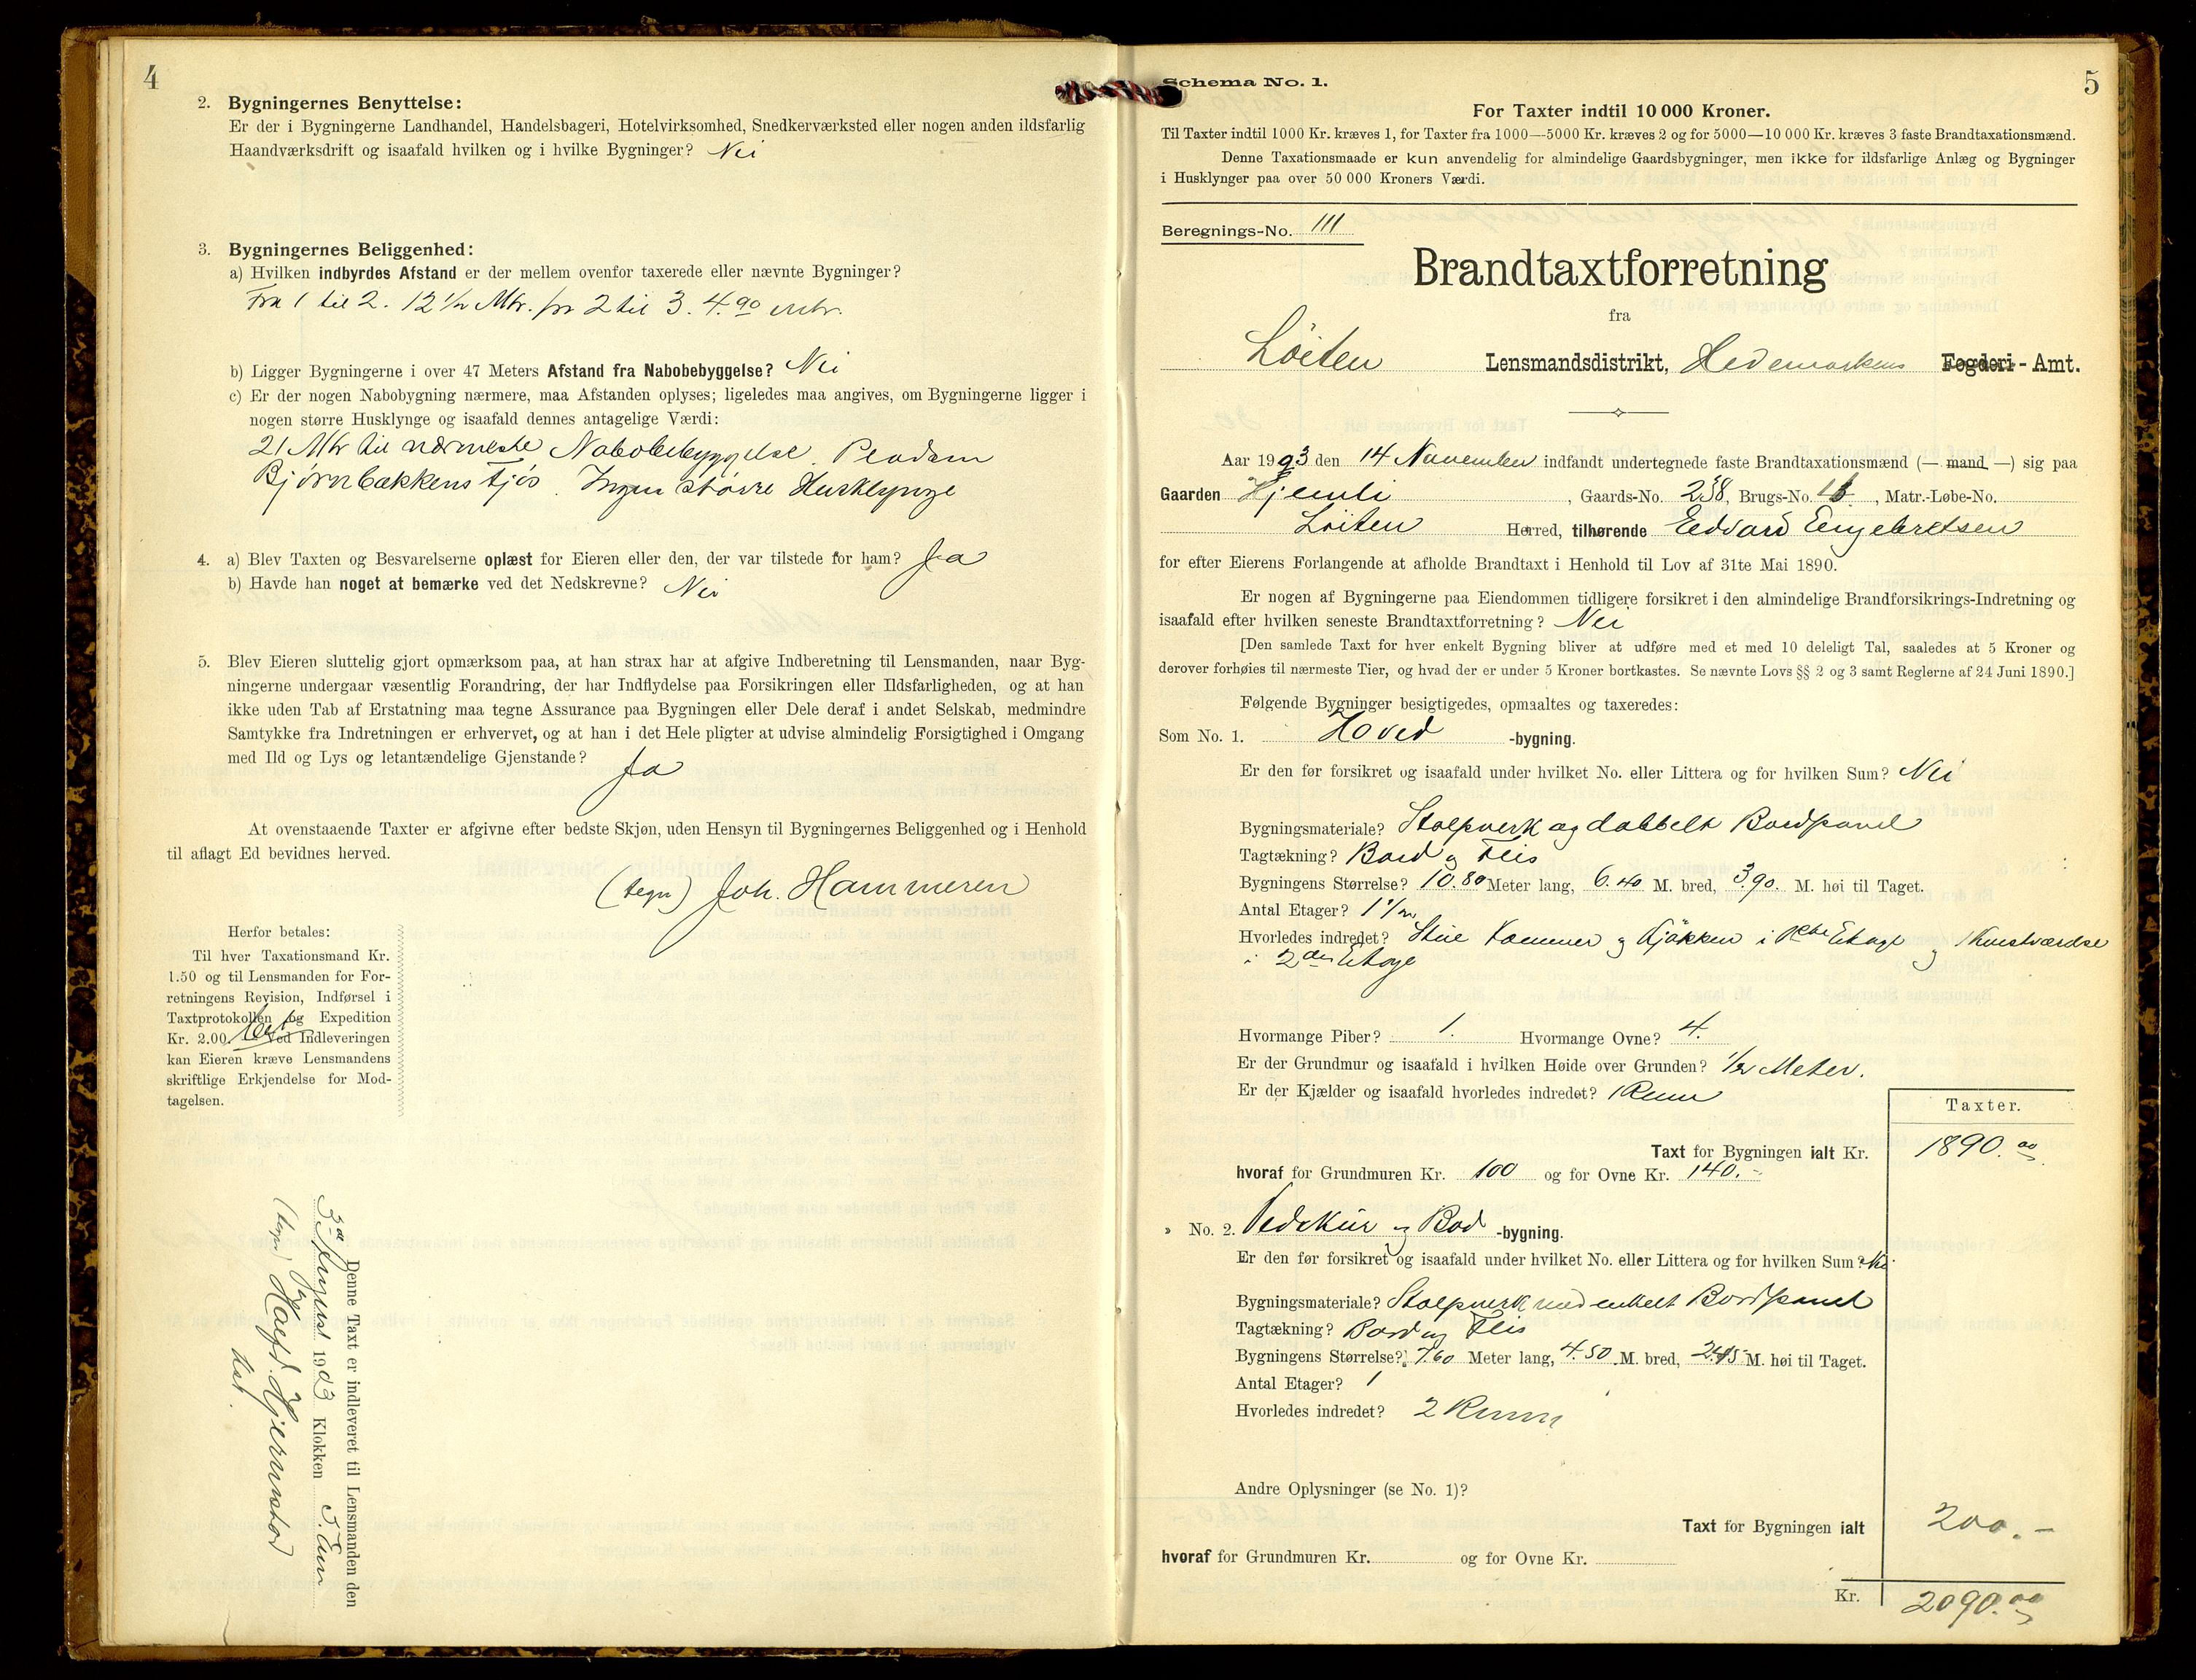 4
2. Bygningernes Benyttelse:
Er der i Bygningerne Landhandel, Handelsbageri, Hotelvirksomhed, Snedkerværksted eller nogen anden ildsfarlig
Haandværksdrift og isaafald hvilken og i hvilke Bygninger? Nei
3. Bygningernes Beliggenhed:
a) Hvilken indbyrdes Afstand er der mellem ovenfor taxerede eller nævnte Bygninger?
Fra 1 til 2. 12 1/2 Mtr. fra 2 til 3. 4.90 mtr.
b) Ligger Bygningerne i over 47 Meters Afstand fra Nabobebyggelse? Nei
c) Er der nogen Nabobygning nærmere, maa Afstanden oplyses; ligeledes maa angives, om Bygningerne ligger i
nogen større Husklynge og isaafald dennes antagelige Værdi:
21 Mtr til nærmeste Nabobebyggelse.
Bjørnbakkens Fjøs. Ingen større Husklynge
4. a) Blev Taxten og Besvarelserne oplæst for Eieren eller den, der var tilstede for ham? Ja
b) Havde han noget at bemærke ved det Nedskrevne? Nei
5. Blev Eieren sluttelig gjort opmærksom paa, at han strax har at afgive Indberetning til Lensmanden, naar Byg-
ningerne undergaar væsentlig Forandring, der har Indflydelse paa Forsikringen eller Ildsfarligheden, og at han
ikke uden Tab af Erstatning maa tegne Assurance paa Bygningen eller Dele deraf i andet Selskab, medmindre
Samtykke fra Indretningen er erhvervet, og at han i det Hele pligter at udvise almindelig Forsigtighed i Omgang
med Ild og Lys og letantændelige Gjenstande? Ja
At ovenstaaende Taxter er afgivne efter bedste Skjøn, uden Hensyn til Bygningernes Beliggenhed og i Henhold
til aflagt Ed bevidnes herved.
(tegn) Joh. Hammeren
Herfor betales:
Til hver Taxationsmand Kr.
1.50 og til Lensmanden for For-
retningens Revision, Indførsel i
Taxtprotokollen og Expedition
Kr. 2.00. Ved Indleveringen
kan Eieren kræve Lensmandens
skriftlige Erkjendelse for Mod-
tagelsen.
Denne Taxt er indleveret til Lensmanden den
3die August 1903 Klokken 5. Em
(tegn) Halfd. Hjermstad
Schema No. 1.
5
For Taxter indtil 10 000 Kroner.
Til Taxter indtil 1000 Kr. kræves 1, for Taxter fra 1000—5000 Kr. kræves 2 og for 5000—10 000 Kr. kræves 3 faste Brandtaxationsmænd.
Denne Taxationsmaade er kun anvendelig for almindelige Gaardsbygninger, men ikke for ildsfarlige Anlæg og Bygninger
i Husklynger paa over 50 000 Kroners Værdi.
Beregnings-No. 111
Brandtaxtforretning
fra
Løiten Lensmandsdistrikt, Hedemarkens Fogderi - Amt.
Aar 1903 den 14 November indfandt undertegnede faste Brandtaxationsmænd (— mand —) sig paa
Gaarden Hjemli, Gaards-No. 258, Brugs-No. 16, Matr.-Løbe-No.
Løiten Herred, tilhørende Edvard Engebretsen
for efter Eierens Forlangende at afholde Brandtaxt i Henhold til Lov af 31te Mai 1890.
Er nogen af Bygningerne paa Eiendommen tidligere forsikret i den almindelige Brandforsikrings-Indretning og
isaafald efter hvilken seneste Brandtaxtforretning? Nei
[Den samlede Taxt for hver enkelt Bygning bliver at udføre med et med 10 deleligt Tal, saaledes at 5 Kroner og
derover forhøies til nærmeste Tier, og hvad der er under 5 Kroner bortkastes. Se nævnte Lovs §§ 2 og 3 samt Reglerne af 24 Juni 1890.]
Følgende Bygninger besigtigedes, opmaaltes og taxeredes:
Som No. 1. Hoved -bygning.
Er den før forsikret og isaafald under hvilket No. eller Littera og for hvilken Sum? Nei
Bygningsmateriale? Stolpverk og dobbelt Bordpanel
Tagtækning? Bord og Flis
Bygningens Størrelse? 10.80 Meter lang, 6.40 M. bred, 3.90. M. høi til Taget.
Antal Etager? 1 1/2
Hvorledes indredet? Stue Kammer og Kjøkken i 1ste Etage og 1 Kvistværelse
i 2den Etage
Hvormange Piber? 1. Hvormange Ovne? 4.
Er der Grundmur og isaafald i hvilken Høide over Grunden? 1/2 Meter.
Er der Kjælder og isaafald hvorledes indredet? 1 Rum
Taxter.
Taxt for Bygningen ialt Kr. 1890.00
hvoraf for Grundmuren Kr. 100 og for Ovne Kr. 140.-
» No. 2. Vedskur og Bod -bygning.
Er den før forsikret og isaafald under hvilket No. eller Littera og for hvilken Sum? Nei
Bygningsmateriale? Stolpverk med enkelt Bordpanel
Tagtækning? Bord og Flis
Bygningens Størrelse? 7.60 Meter lang, 4.50 M. bred, 2.45 M. høi til Taget.
Antal Etager? 1
Hvorledes indredet? 2 Rum
Andre Oplysninger (se No. 1)?
Taxt for Bygningen ialt 200.-
hvoraf for Grundmuren Kr. og for Ovne Kr.
Kr. 2090.00